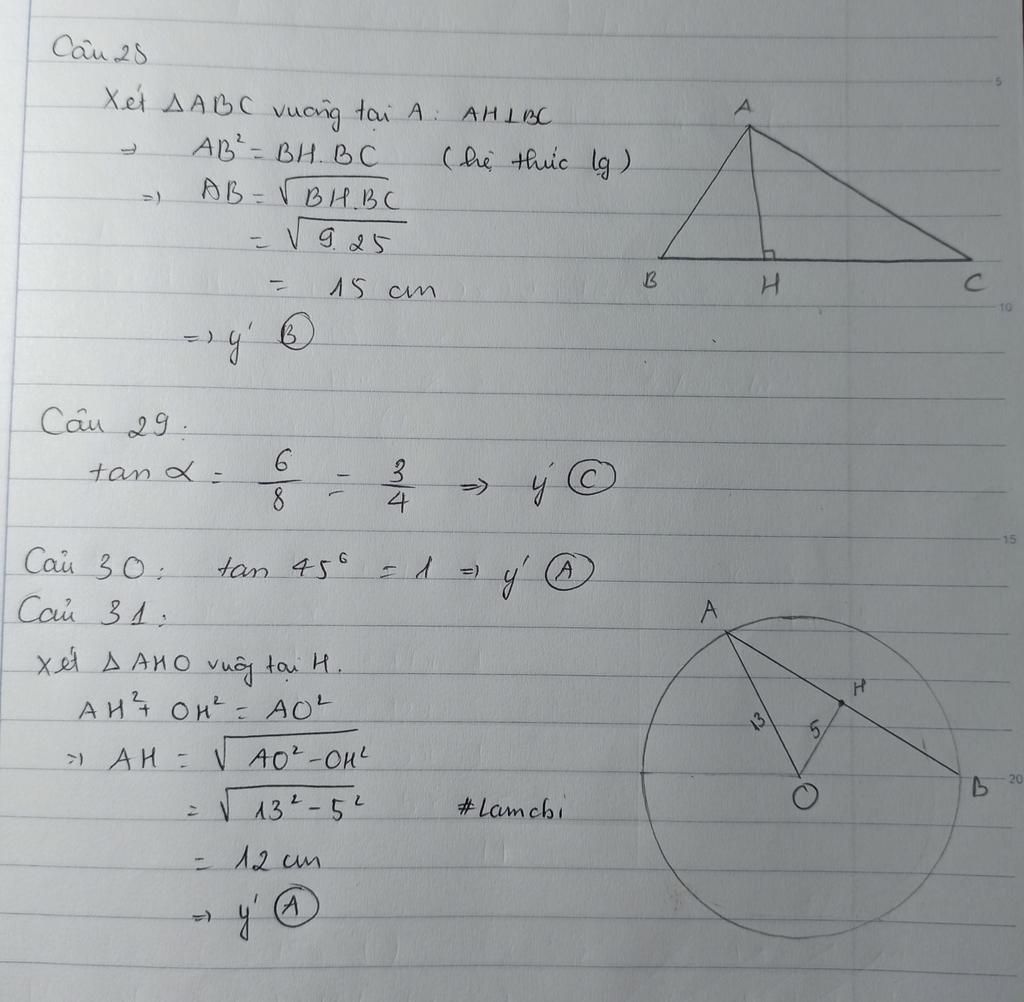 Câu 28
Xét ΔABC vuông tại A: AH⊥BC
⇒ AB² = BH.BC (hệ thức lg)
⇒ AB = √BH.BC
= √9.25
= 15 cm
⇒ ý Ⓑ
A
B
H
C
5
10
Câu 29:
tan α = 6/8 = 3/4 ⇒ ý Ⓒ
15
Câu 30: tan 45° = 1 ⇒ ý Ⓐ
Câu 31:
Xét Δ AHO vuôg tại H.
AH² + OH² = AO²
⇒ AH = √AO² - OH²
= √13² - 5² #Lamchi
= 12 cm
⇒ ý Ⓐ
A
H
13
5
O
B
20